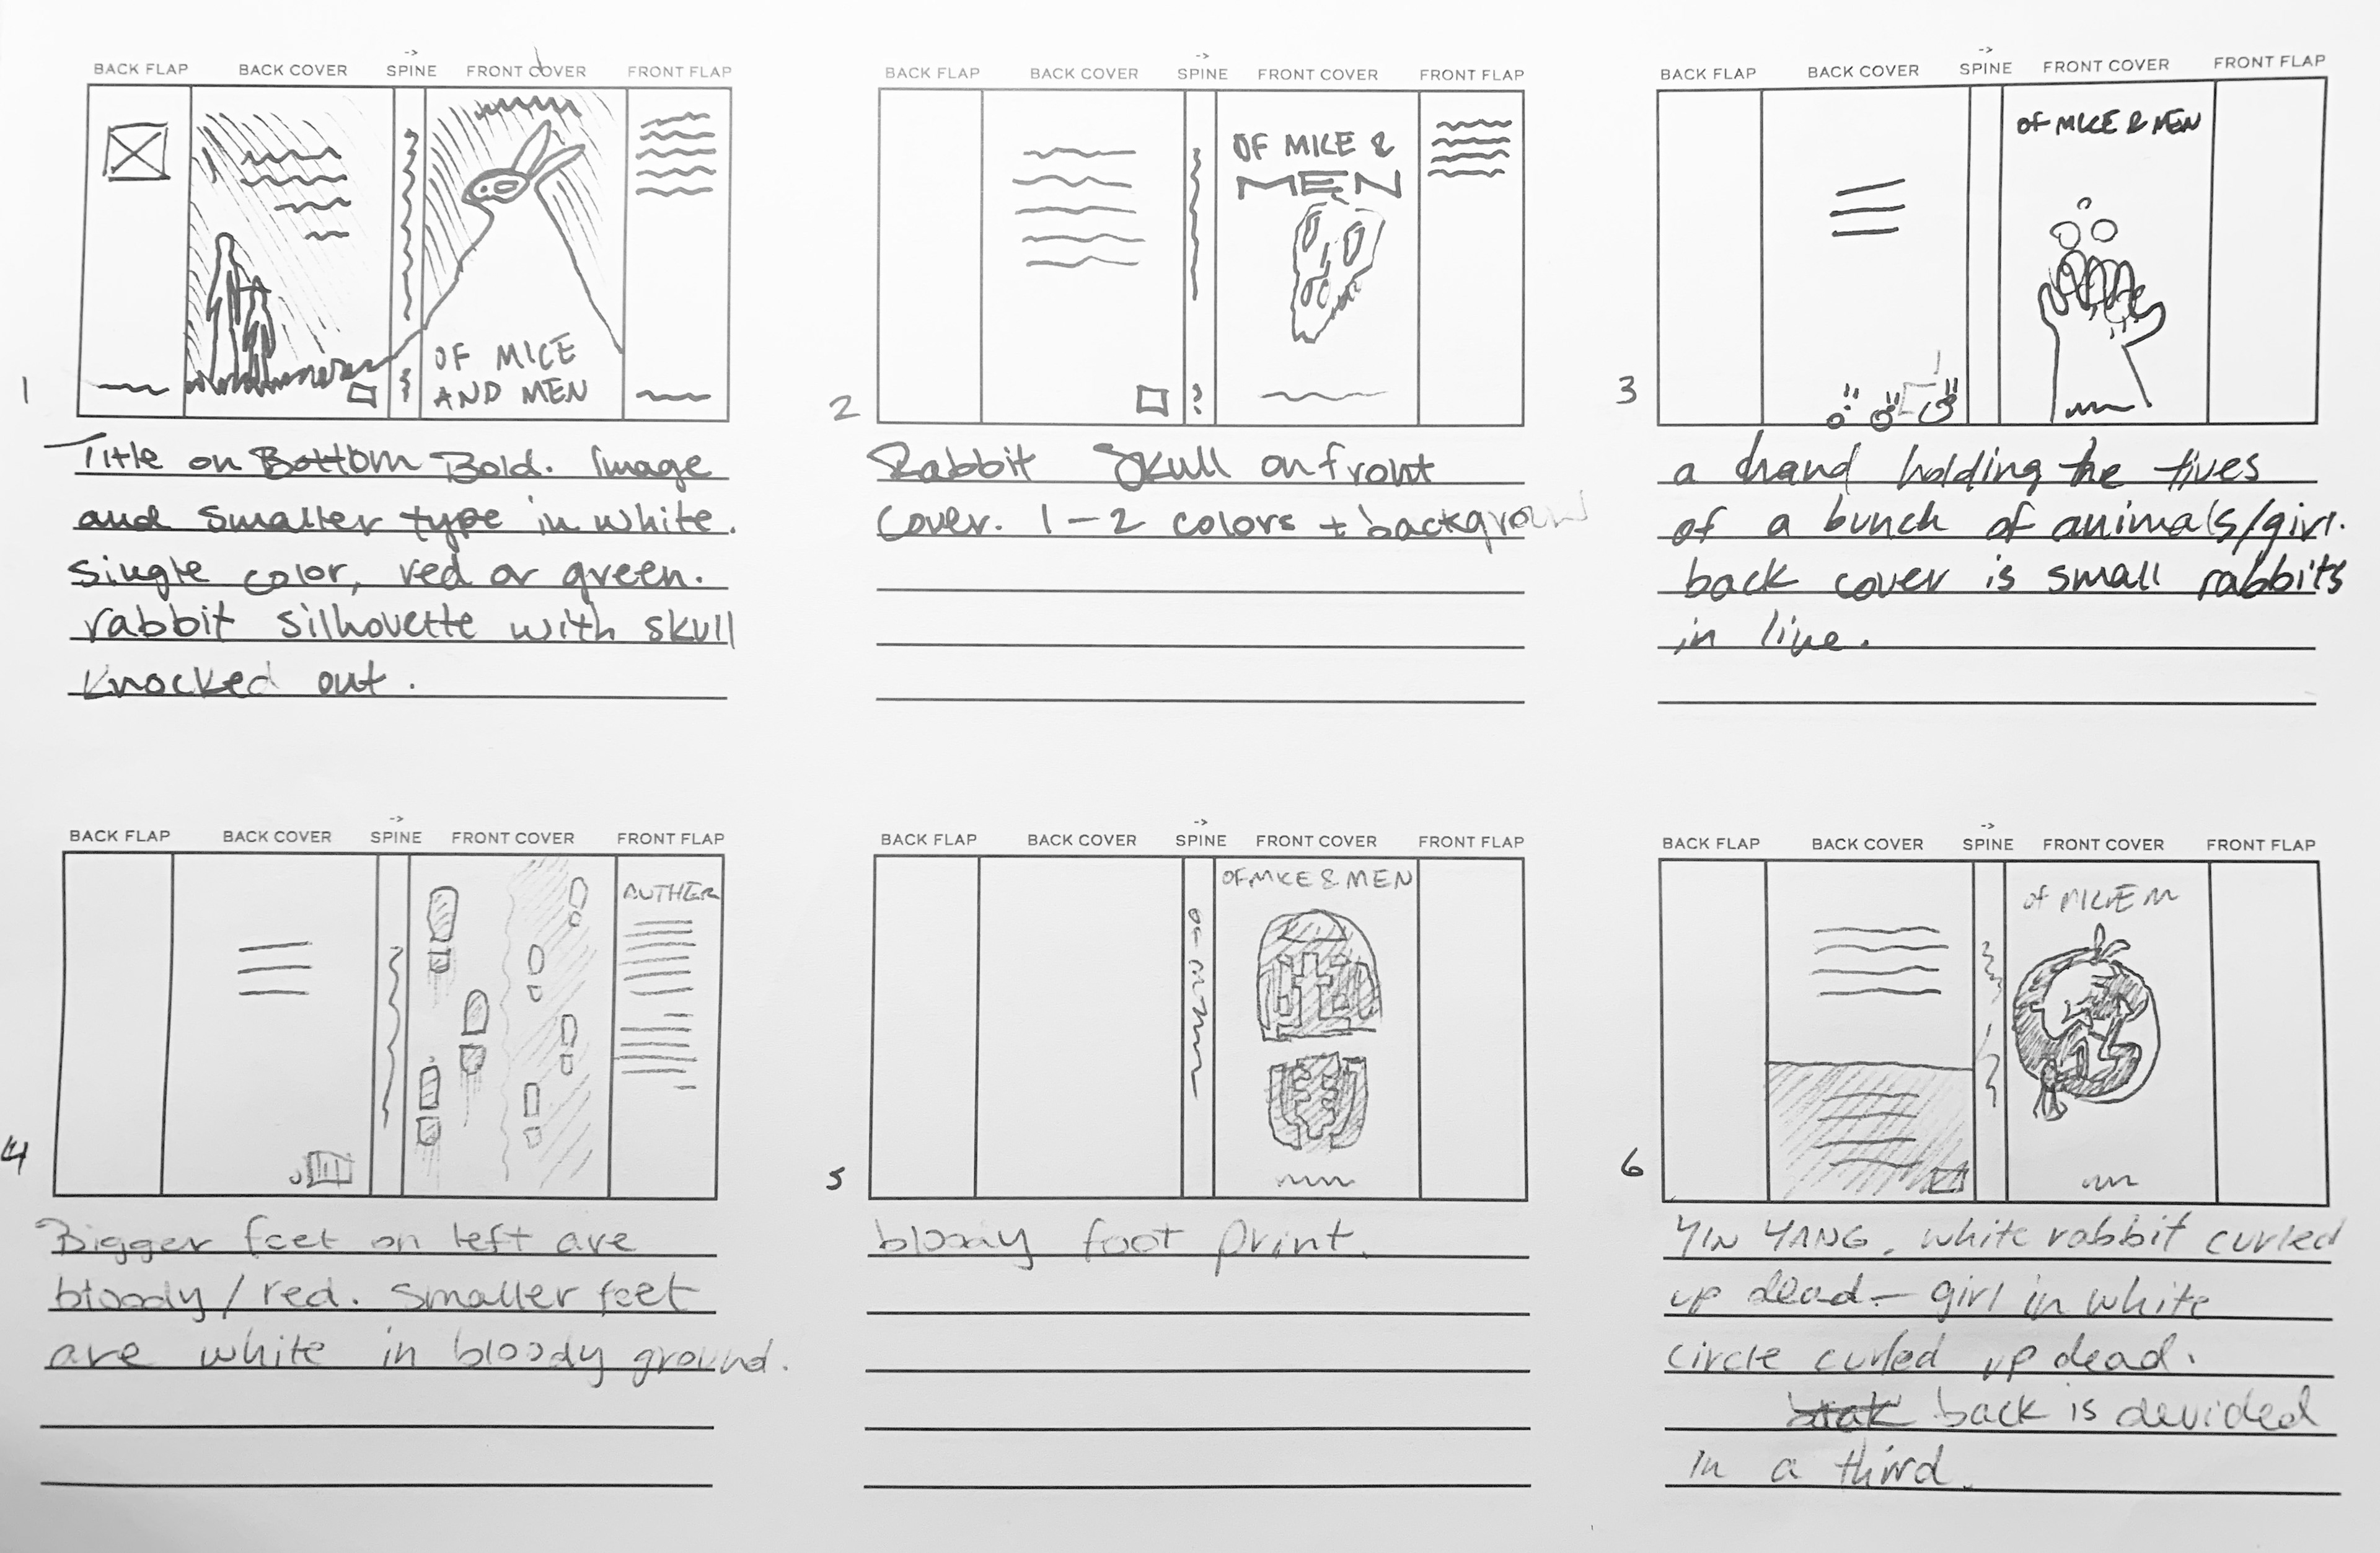 BACK FLAP BACK COVER -> SPINE FRONT COVER FRONT FLAP
OF MICE
AND MEN
1
Title on Bottom Bold. Image
and smaller type in white.
single color, red or green.
rabbit silhouette with skull
knocked out.
BACK FLAP BACK COVER -> SPINE FRONT COVER FRONT FLAP
OF MICE &
MEN
?
2
Rabbit Skull on front
cover. 1-2 colors + background
BACK FLAP BACK COVER -> SPINE FRONT COVER FRONT FLAP
OF MICE & MEN
3
a hand holding the lives
of a bunch of animals/girl.
back cover is small rabbits
in line.
BACK FLAP BACK COVER -> SPINE FRONT COVER FRONT FLAP
AUTHER
4
Bigger feet on left are
bloody/red. smaller feet
are white in bloody ground.
BACK FLAP BACK COVER -> SPINE FRONT COVER FRONT FLAP
OF MICE & MEN
5
bloody foot print.
BACK FLAP BACK COVER -> SPINE FRONT COVER FRONT FLAP
of MICE M
6
YIN YANG. white rabbit curled
up dead - girl in white
circle curled up dead.
back is devided
in a third.